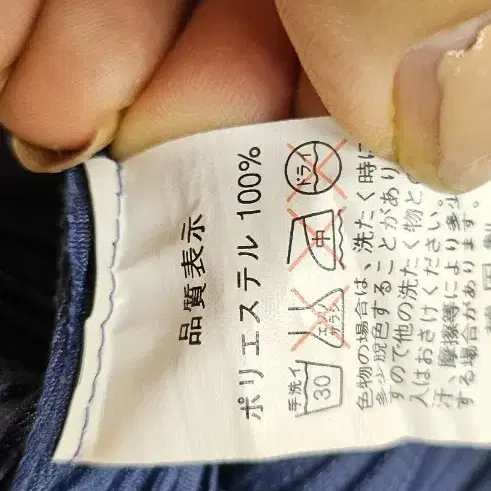 品質表示
ポリエステル 100%
手洗イ
30
エンソ
サラシ
中
ドライ
色物の場合は、洗たく時に
多少脱色することがあり
すので他の洗たく物と
入はおさけください。
汗、摩擦等により多少
する場合があります。